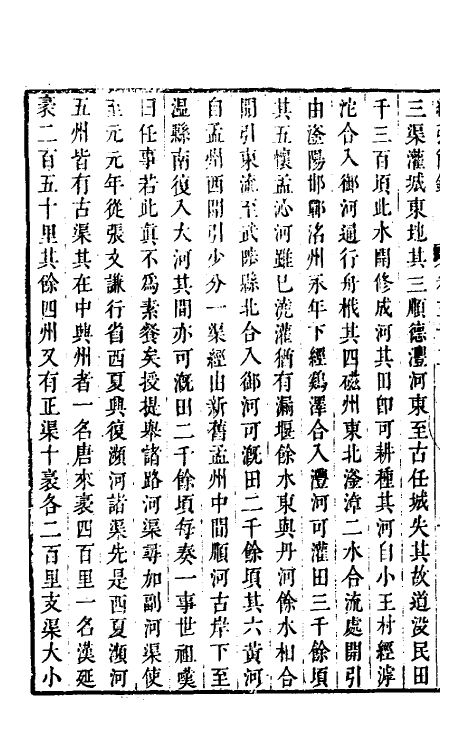 三渠灌城東地其三順德灃河東至古任城失其故道沒民田
千三百頃此水開修成河其田卽可耕種其河自小王村經滹
沱合入御河通行舟栰其四磁州東北滏漳二水合流處開引
由滏陽邯鄲洺州永年下經鷄澤合入灃河可灌田三千餘頃
其五懷孟沁河雖已澆灌猶有漏堰餘水東與丹河餘水相合
開引東流至武陟縣北合入御河可漑田二千餘頃其六黃河
自孟州西開引少分一渠經由新舊孟州中間順河古岸下至
溫縣南復入大河其間亦可漑田二千餘頃每奏一事世祖嘆
曰任事若此眞不爲素餐矣授提舉諸路河渠尋加副河渠使
至元元年從張文謙行省西夏興復瀕河諸渠先是西夏瀕河
五州皆有古渠其在中興州者一名唐來袤四百里一名漢延
袤二百五十里其餘四州又有正渠十袤各二百里支渠大小